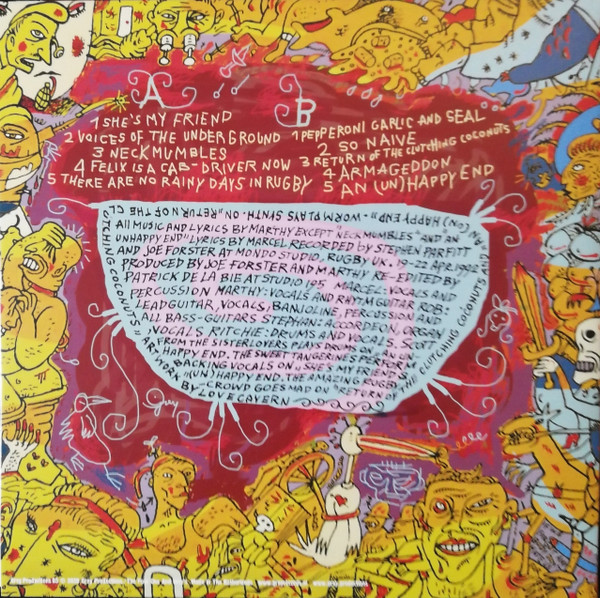 A
1 SHE'S MY FRIEND
2 VOICES OF THE UNDERGROUND
3 NECKMUMBLES
4 FELIX IS A CAB-DRIVER NOW
5 THERE ARE NO RAINY DAYS IN RUGBY
B
1 PEPPERONI GARLIC AND SEAL
2 SO NAIVE
3 RETURN OF THE CLUTCHING COCONUTS
4 ARMAGEDDON
5 AN (UN)HAPPY END
AN (UN)HAPPY END"- WORM PLAYS SYNTH. ON "RETURN OF THE CLUTCHING COCONUTS
All MUSIC AND LYRICS BY MARTHY EXCEPT "NECKMUMBLES" AND AN
UNHAPPY END" LYRICS BY MARCEL RECORDED BY STEPHEN PARFITT
AND JOE FORSTER AT MONDO STUDIO, RUGBY UK. 22 APR. 1992
PRODUCED BY JOE FORSTER AND MARTHY RE-EDITED BY
PATRICK DELABIE AT STUDIO MARCEL VOCALS AND
PERCUSSION MARTHY: VOCALS AND RHYTM GUITAR ROB:
LEADGUITAR, VOCALS, BANJOLINE, PERCUSSION
ALL BASS-GUITARS STEPHAN: ACCORDEON, ORGAN
VOCALS RITCHIE: DRUMS AND VOCALS
FROM THE SISTERLOVERS PIANO
HAPPY END. THE SWEET TANGERINES PERFORM
BACKING VOCALS ON "SHE'S MY FRIEND
(UN)HAPPY END. THE AMAZING RUGBY
CROWD GOES MAD ON "RETURN OF THE CLUTCHING COCONUTS AND
ARTWORK BY LOVECAVERN